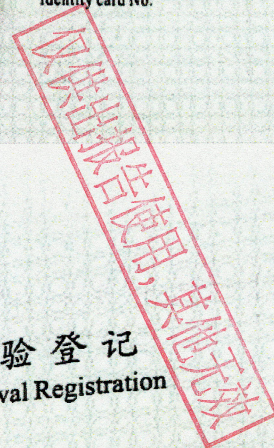 Identity card No.
仅供出报告使用，其他无效
验登记
val Registration